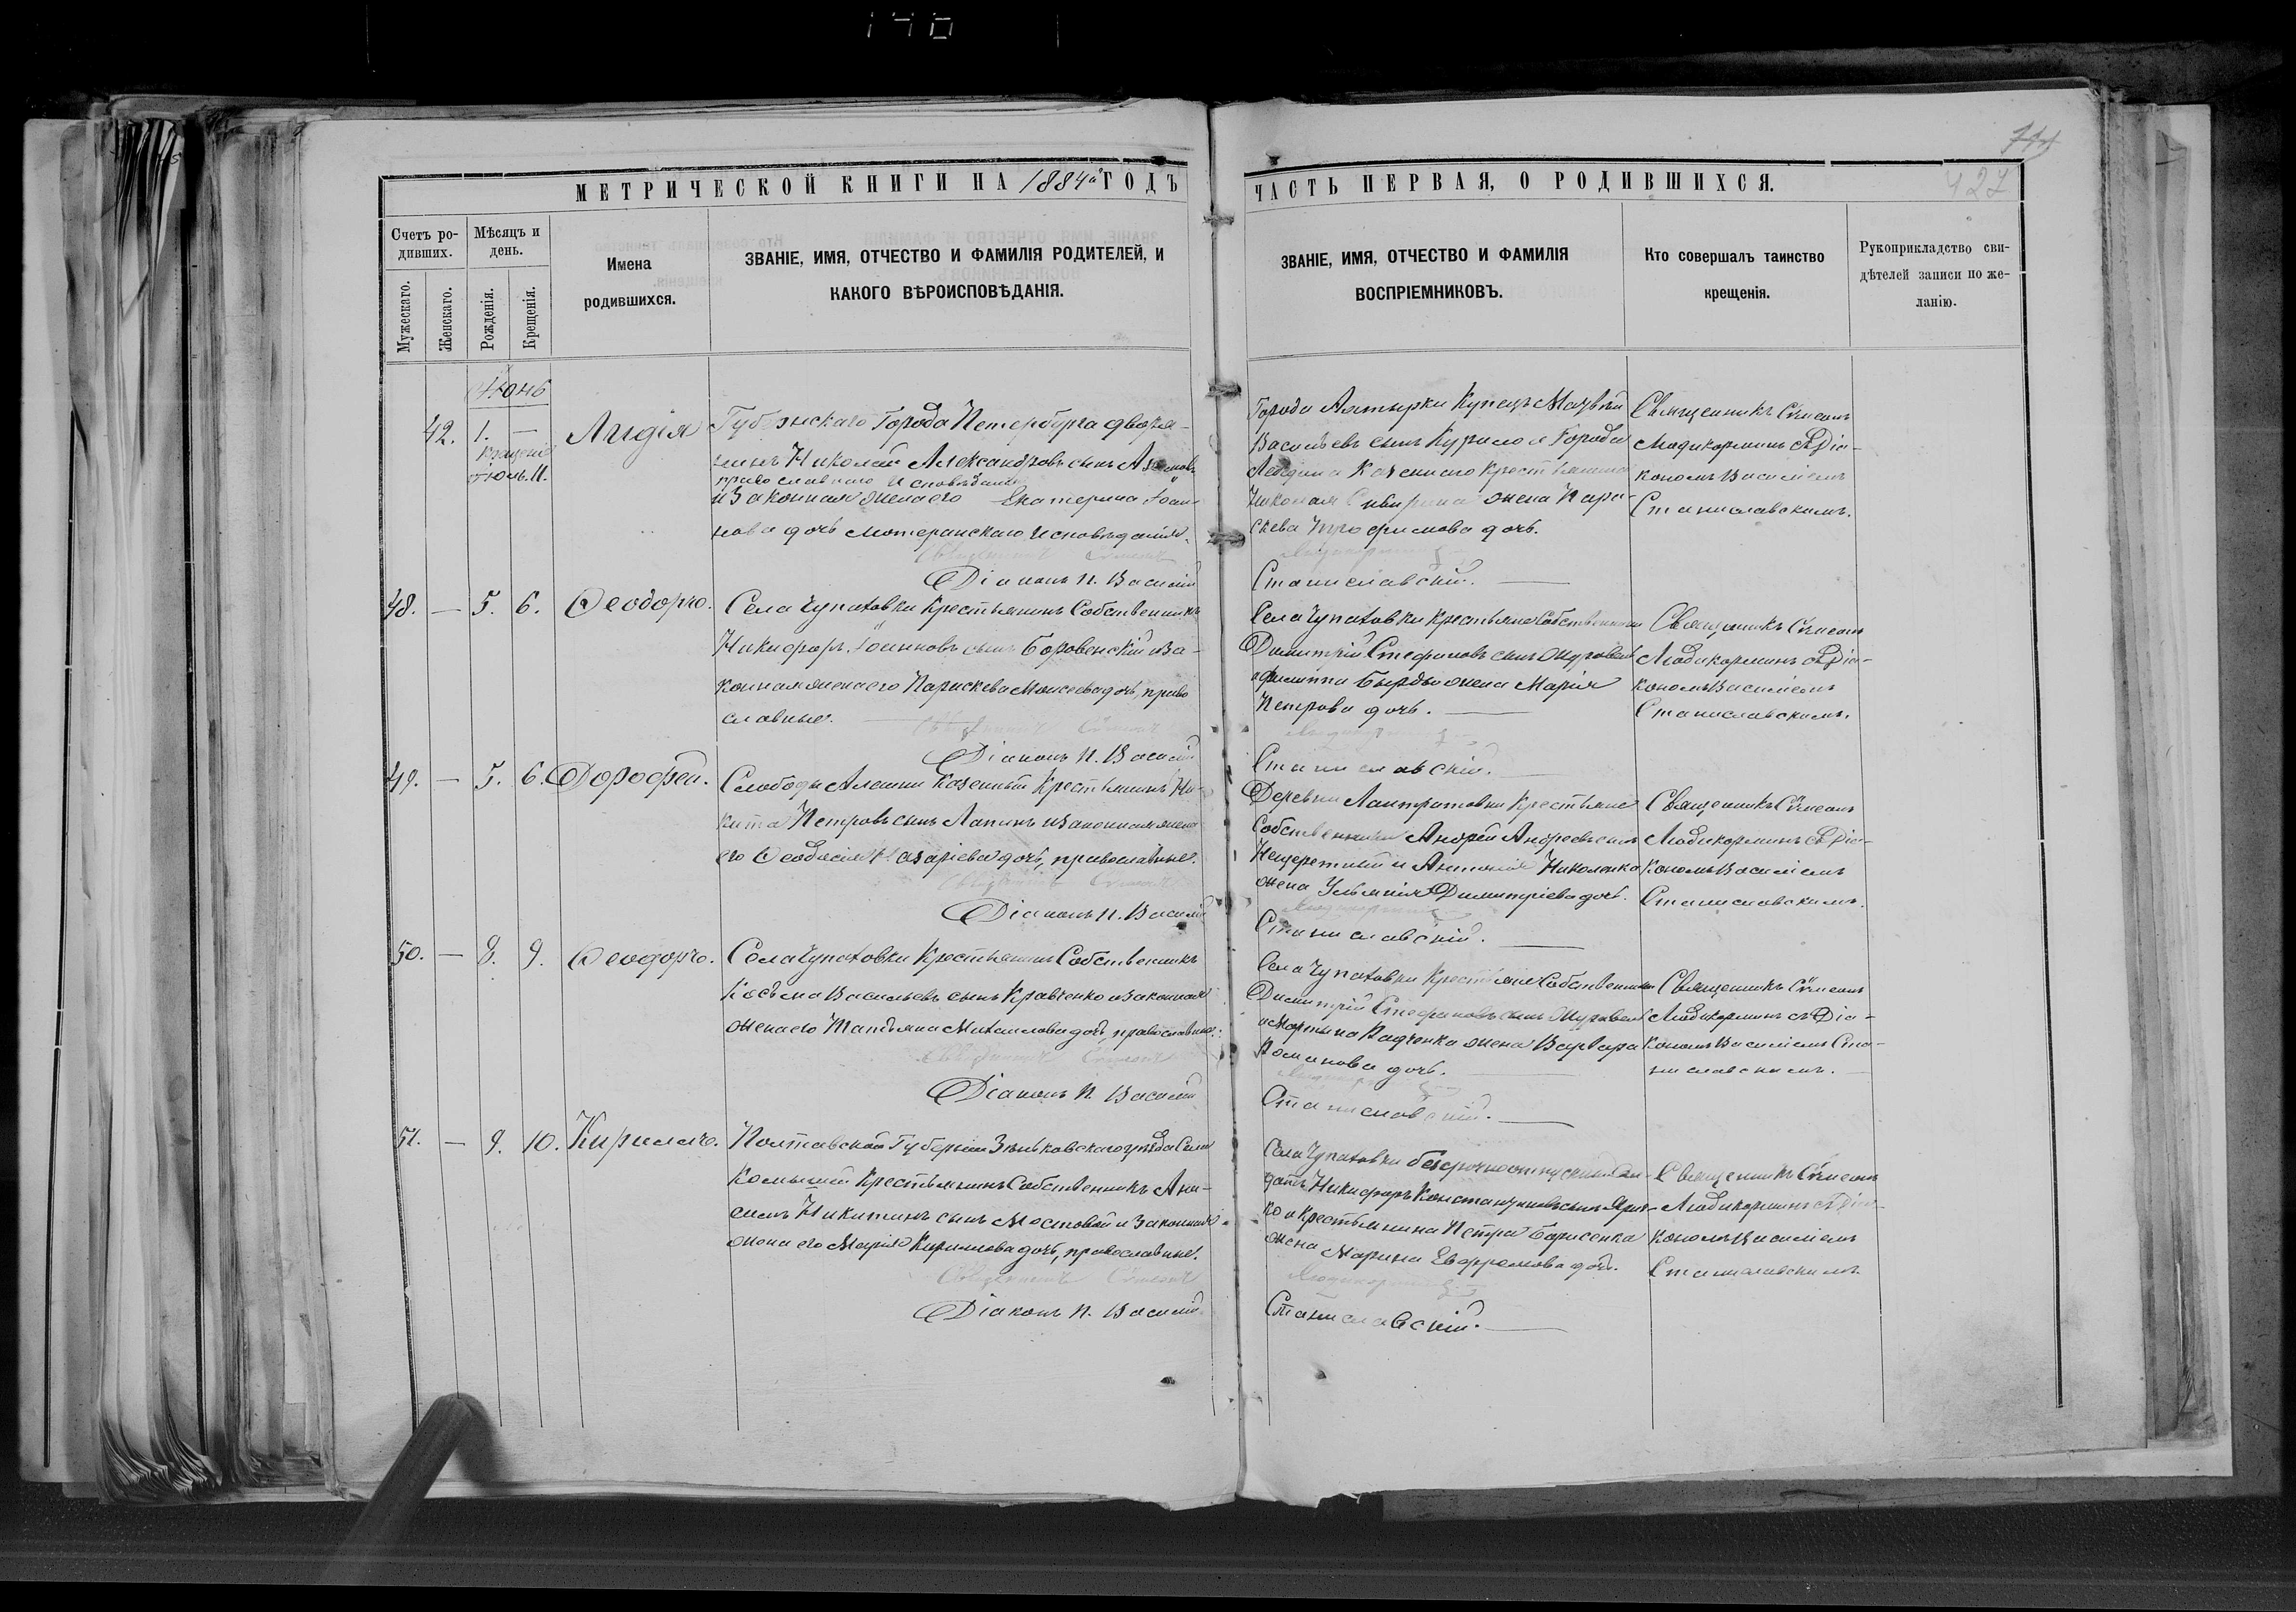 МЕТРИЧЕСКОЙ КНИГИ НА 1884й ГОДЪ
ЧАСТЬ ПЕРВАЯ, О РОДИВШИХСЯ.
427
Счетъ ро-
дивших.
Мужескаго.
Женскаго.
Мѣсяцъ и
день.
Рожденія.
Крещенія.
Имена
родившихся.
ЗВАНІЕ, ИМЯ, ОТЧЕСТВО И ФАМИЛІЯ РОДИТЕЛЕЙ, И
КАКОГО ВѢРОИСПОВѢДАНІЯ.
ЗВАНІЕ, ИМЯ, ОТЧЕСТВО И ФАМИЛІЯ
ВОСПРІЕМНИКОВЪ.
Кто совершалъ таинство
крещенія.
Рукоприкладство сви-
дѣтелей записи по же-
ланію.
Іюнь
42. 1. —
Іюль. 11.
Лидія
Губернскаго Города Петербурга дворя-
нинъ Николай Александровъ сынъ
православнаго исповѣданія
и законная жена его Екатерина Іоан-
нова дочь лютеранскаго исповѣданія.
Діаконъ П. Василій
Города Ахтырки Купецъ Матвѣй
Васильевъ сынъ и Города
Лебедина Казеннаго крестьянина
Николая жена Пара-
скева Трофимова дочь.
Станиславскій.
Священникъ Сѵмеонъ
съ Діа-
кономъ Василіемъ
Станиславскимъ.
48. — 5. 6. Ѳеодоръ.
Села Чупаховки Крестьянинъ Собственникъ
Никифоръ Іоанновъ сынъ Боровенскій и за-
конная жена его Параскева Моисеева дочь, право
славные.
Діаконъ П. Василій
Села Чупаховки крестьяне Собственники
Димитрій Стефановъ сынъ Журавель
и Филиппа жена Марія
Петрова дочь.
Станиславскій.
Священникъ Сѵмеонъ
Людикорминъ съ Діа-
кономъ Василіемъ
Станиславскимъ.
49. — 5. 6. Дорофей.
Слободы Алешни Казенный Крестьянинъ Ни-
кита Петровъ сынъ Лапинъ и законная жена
его Ѳеодосія Назаріева дочь, православные.
Діаконъ П. Василій
Деревни Лантратовки Крестьяне
Собственники Андрей Андреевъ сынъ
и Антонія Николенка
жена Ульянія Димитріева дочь.
Станиславскій.
Священникъ Сѵмеонъ
Людикорминъ съ Діа-
кономъ Василіемъ
Станиславскимъ.
50. — 8. 9. Ѳеодоръ.
Села Чупаховки Крестьянинъ Собственникъ
Косьма Васильевъ сынъ Кравченко и законная
жена его Татьяна Михаилова дочь, православные.
Діаконъ П. Василій
Села Чупаховки Крестьяне Собственники
Димитрій Стефановъ сынъ Журавель
и Мартина Радченка жена Варвара
Романова дочь.
Станиславскій.
Священникъ Сѵмеонъ
Людикорминъ съ Діа-
кономъ Василіемъ Ста-
ниславскимъ.
51. — 9. 10. Кириллъ.
Полтавской Губерніи Зѣньковскаго уѣзда Села
Комышей Крестьянинъ Собственникъ Ани-
симъ Никитинъ сынъ Мостовой и законная
жена его Марія Кириллова дочь, православные.
Діаконъ П. Василій
Села Чупаховки безсрочноотпускный Сол-
датъ Никифоръ Константиновъ сынъ
ко и крестьянина Петра Борисенка
жена Марина Евфремова дочь.
Станиславскій.
Священникъ Сѵмеонъ
Людикорминъ съ Діа-
кономъ Василіемъ
Станиславскимъ.